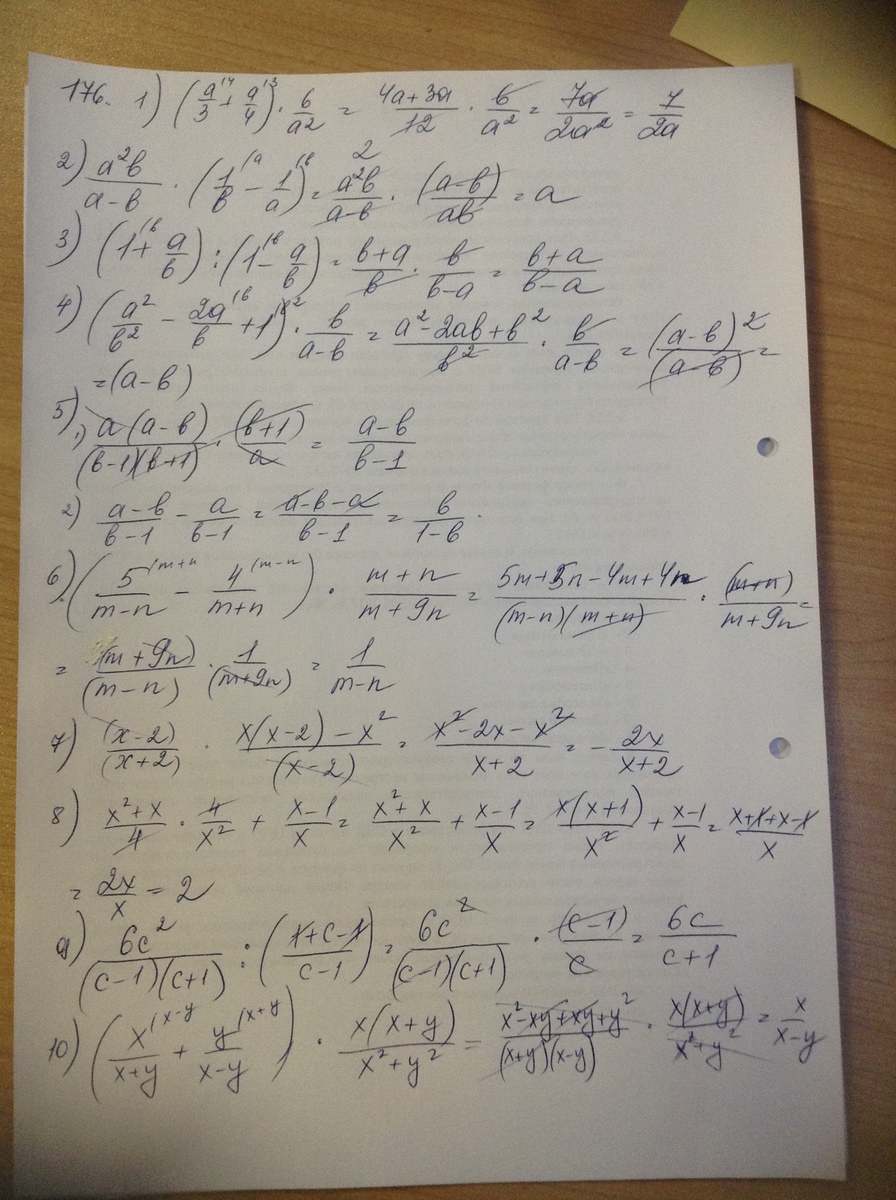 176. 1) (a/3^(4 + a/4^(3) · 6/a² = (4a+3a)/12 · 6/a² = 7a/2a² = 7/2a
2) a²b/(a-b) · (1/b^(a - 1/a^(b) = a²b/(a-b) · (a-b)/ab = a
3) (1^(b + a/b) : (1^(b - a/b) = (b+a)/b · b/(b-a) = (b+a)/(b-a)
4) (a²/b² - 2a/b^(b + 1^(b²) · b/(a-b) = (a²-2ab+b²)/b² · b/(a-b) = (a-b)²/(a-b) =
= (a-b)
5) 1) a(a-b)/(b-1)(b+1) · (b+1)/a = (a-b)/(b-1)
2) (a-b)/(b-1) - a/(b-1) = (a-b-a)/(b-1) = b/(1-b) .
6) (5/(m-n)^(m+n - 4/(m+n)^(m-n) · (m+n)/(m+9n) = (5m+5n-4m+4n)/(m-n)(m+n) · (m+n)/(m+9n) =
= (m+9n)/(m-n) · 1/(m+9n) = 1/(m-n)
7) (x-2)/(x+2) · (x(x-2)-x²)/(x-2) = (x²-2x-x²)/(x+2) = -2x/(x+2)
8) (x²+x)/4 · 4/x² + (x-1)/x = (x²+x)/x² + (x-1)/x = x(x+1)/x² + (x-1)/x = (x+1+x-1)/x
= 2x/x = 2
9) 6c²/(c-1)(c+1) : ((1+c-1)/(c-1)) = 6c²/(c-1)(c+1) · (c-1)/c = 6c/(c+1)
10) (x/(x+y)^(x-y + y/(x-y)^(x+y) · x(x+y)/(x²+y²) = (x²-xy+xy+y²)/(x+y)(x-y) · x(x+y)/(x²+y²) = x/(x-y)